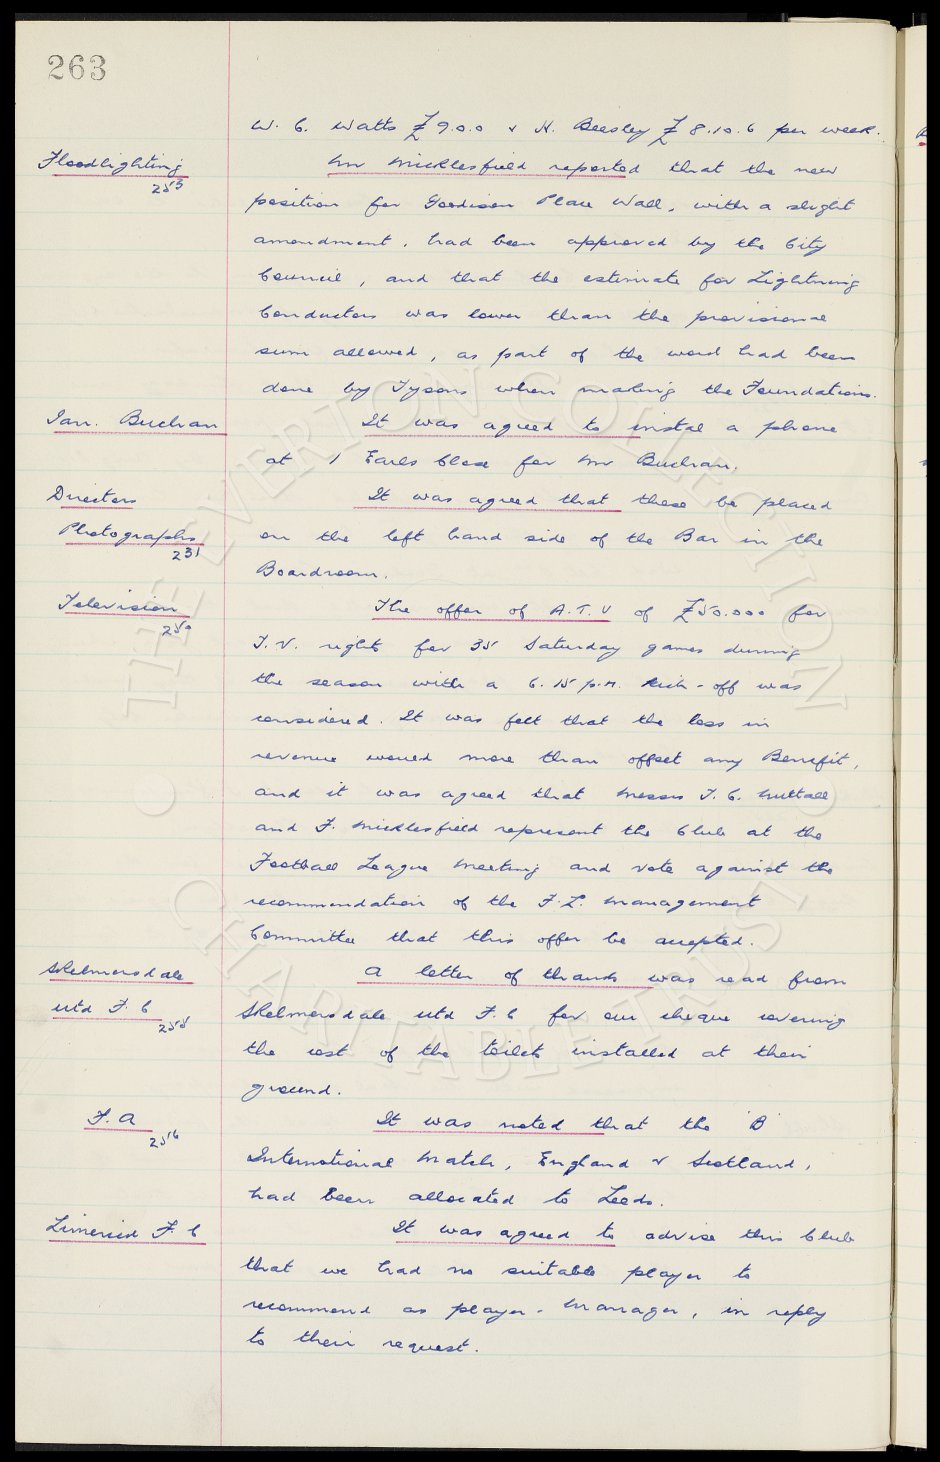 263
W. C. Watts £9.0.0 & H. Beesley £8.10.6 per week.
Floodlighting
253
Mr Micklesfield reported that the new
position for Goodison Place Wall, with a slight
amendment, had been approved by the City
Council, and that the estimate for Lightning
Conductors was lower than the provisional
sum allowed, as part of the work had been
done by Tysons when making the Foundations.
Ian. Buchan
It was agreed to instal a phone
at 1 Earls Close for Mr Buchan.
Directors
Photographs
231
It was agreed that these be placed
on the left hand side of the Bar in the
Boardroom.
Television
250
The offer of A.T.V of £50.000 for
T.V. rights for 35 Saturday games during
the season with a 6.15 p.m. Kick-off was
considered. It was felt that the loss in
revenue would more than offset any Benefit,
and it was agreed that Messrs T. C. Nuttall
and F. Micklesfield represent the Club at the
Football League Meeting and vote against the
recommendation of the F.L. Management
Committee that this offer be accepted.
Skelmersdale
Utd F.C
255
A letter of thanks was read from
Skelmersdale Utd F.C for our cheque covering
the cost of the toilets installed at their
ground.
F.A
256
It was noted that the 'B'
International Match, England v Scotland,
had been allocated to Leeds.
Limerick F.C
It was agreed to advise this Club
that we had no suitable player to
recommend as player-manager, in reply
to their request.
THE EVERTON COLLECTION
CHARITABLE TRUST